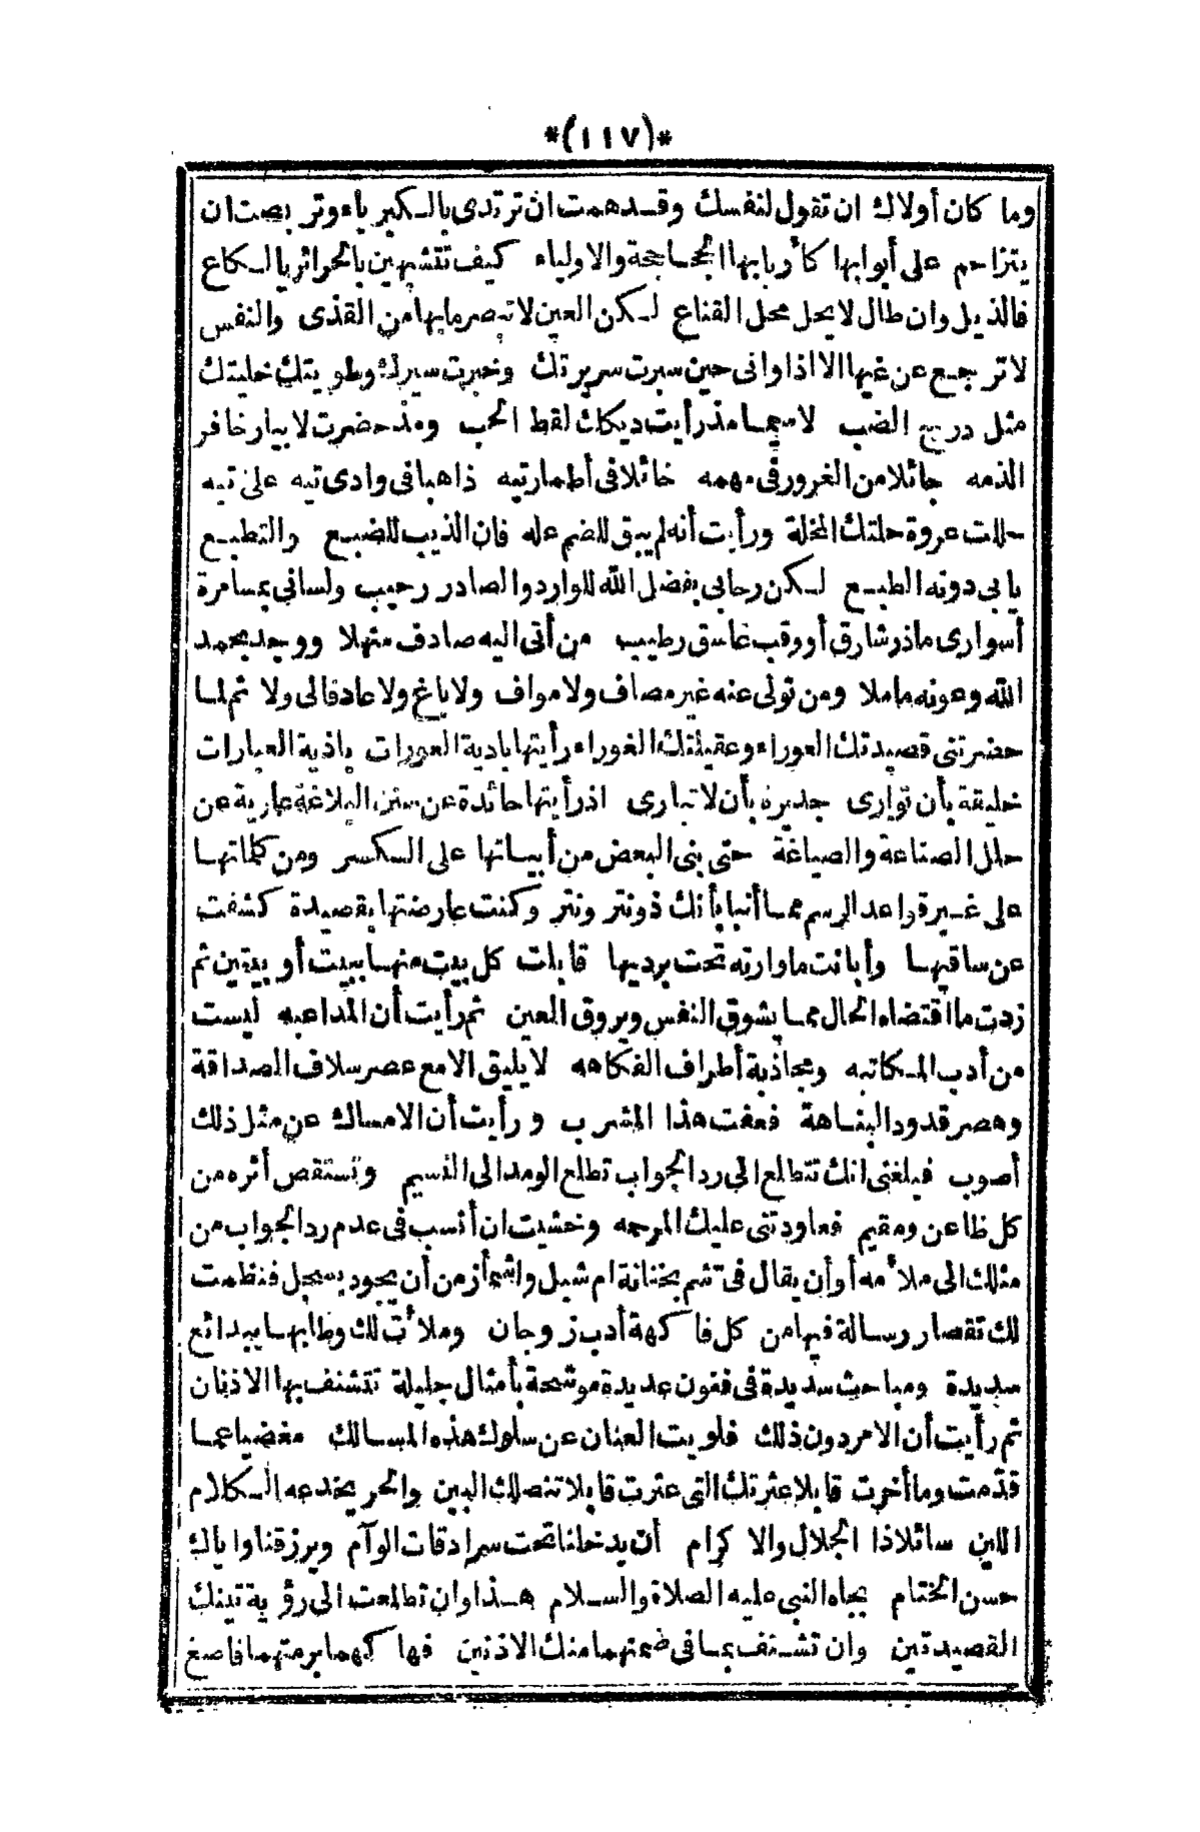 *(١١٧)*
وما كان أولاك ان تقول لنفسك وقد هممت ان ترتدى بالكبرياء وتربصت ان
يتزاحم على أبوابها كأربابها الجحاجحة والاولياء كيف تتشبهين بالحرائر يالكاع
فالذيل وان طال لا يحل محل القناع لكن العين لا تبصر ما بها من القذى والنفس
لا ترجع عن غيها الا اذا وانى حين سبرت سريرتك وخبرت سيرك وطويتك خليتك
مثل دريح الضب لا سيما مذ رأيت ديكك لقط الحب ومذ حضرت لابيار خافر
الذمه جائلا من الغرور فى مهمه خائلا فى أطمارتيه ذاهبا فى وادى تيه على تيه
حللت عروة حلتك المخلة ورأيت أنه لم يبق للضم عله فان الذيب للضبع والتطبع
يابى دونه الطبع لكن رحابى بفضل الله للوارد والصادر رحيب ولسانى بمسامرة
أسوارى ماذر شارق أو وقب غاسق رطيب من أتى اليه صادف منهلا ووجد بحمد
الله وعونه ماملا ومن تولى عنه غير مصاف ولا مواف ولا باغ ولا عاد فالى ولا ثم لما
حضرتنى قصيدتك العوراء وعقيلتك الغوراء رأيتها بادية العورات باذية العبارات
خليقة بأن توارى جديرة بأن لا تبارى اذ رأيتها حائدة عن سنن البلاغة عارية عن
حلل الصناعة والصياغة حتى بنى البعض من أبياتها على الكسر ومن كلماتها
على غير قواعد الرسم مما أنبا بأنك ذو نتر ونتر وكنت عارضتها بقصيدة كشفت
عن ساقيها وأبانت ما وارته تحت برديها قابلت كل بيت منها ببيت أو بيتين ثم
زدت ما اقتضاه الحال مما يشوق النفس ويروق العين ثم رأيت أن المداعبه ليست
من أدب المكاتبه ومجاذبة أطراف الفكاهه لا يليق الا مع عصر سلاف الصداقة
وهصر قدود النباهة فعفت هذا المشرب ورأيت أن الامساك عن مثل ذلك
أصوب فبلغنى انك تتطلع الى رد الجواب تطلع الومد الى النسيم وتستقص أثره من
كل ظاعن ومقيم فعاودتنى عليك المرحمه وخشيت ان أنسب فى عدم رد الجواب من
مثلك الى ملأمه أو أن يقال فى تشم بختانة ام شبل واشمأز من أن يجود بسجل فنظمت
لك تقصار رسالة فيها من كل فاكهة أدب زوجان وملأت لك وطابها ببدائع
سديدة ومباحث سديدة فى فنون عديدة موشحة بأمثال جليلة تتشنف بها الاذنان
ثم رأيت أن الامر دون ذلك فلويت العنان عن سلوك هذه المسالك مغضيا عما
قدّمت وما أخرت قابلا عثرتك التى عثرت قابلا تنصلك البين والحر يخدعه الكلام
اللين سائلا ذا الجلال والاكرام أن يدخلنا تحت سرادقات الوآم ويرزقنا واياك
حسن الختام بجاه النبى عليه الصلاة والسلام هذا وان تطالعت الى رؤية تينك
القصيدتين وان تشنف بما فى ضمنهما منك الاذنين فهاكهما برمتهما فاصغ